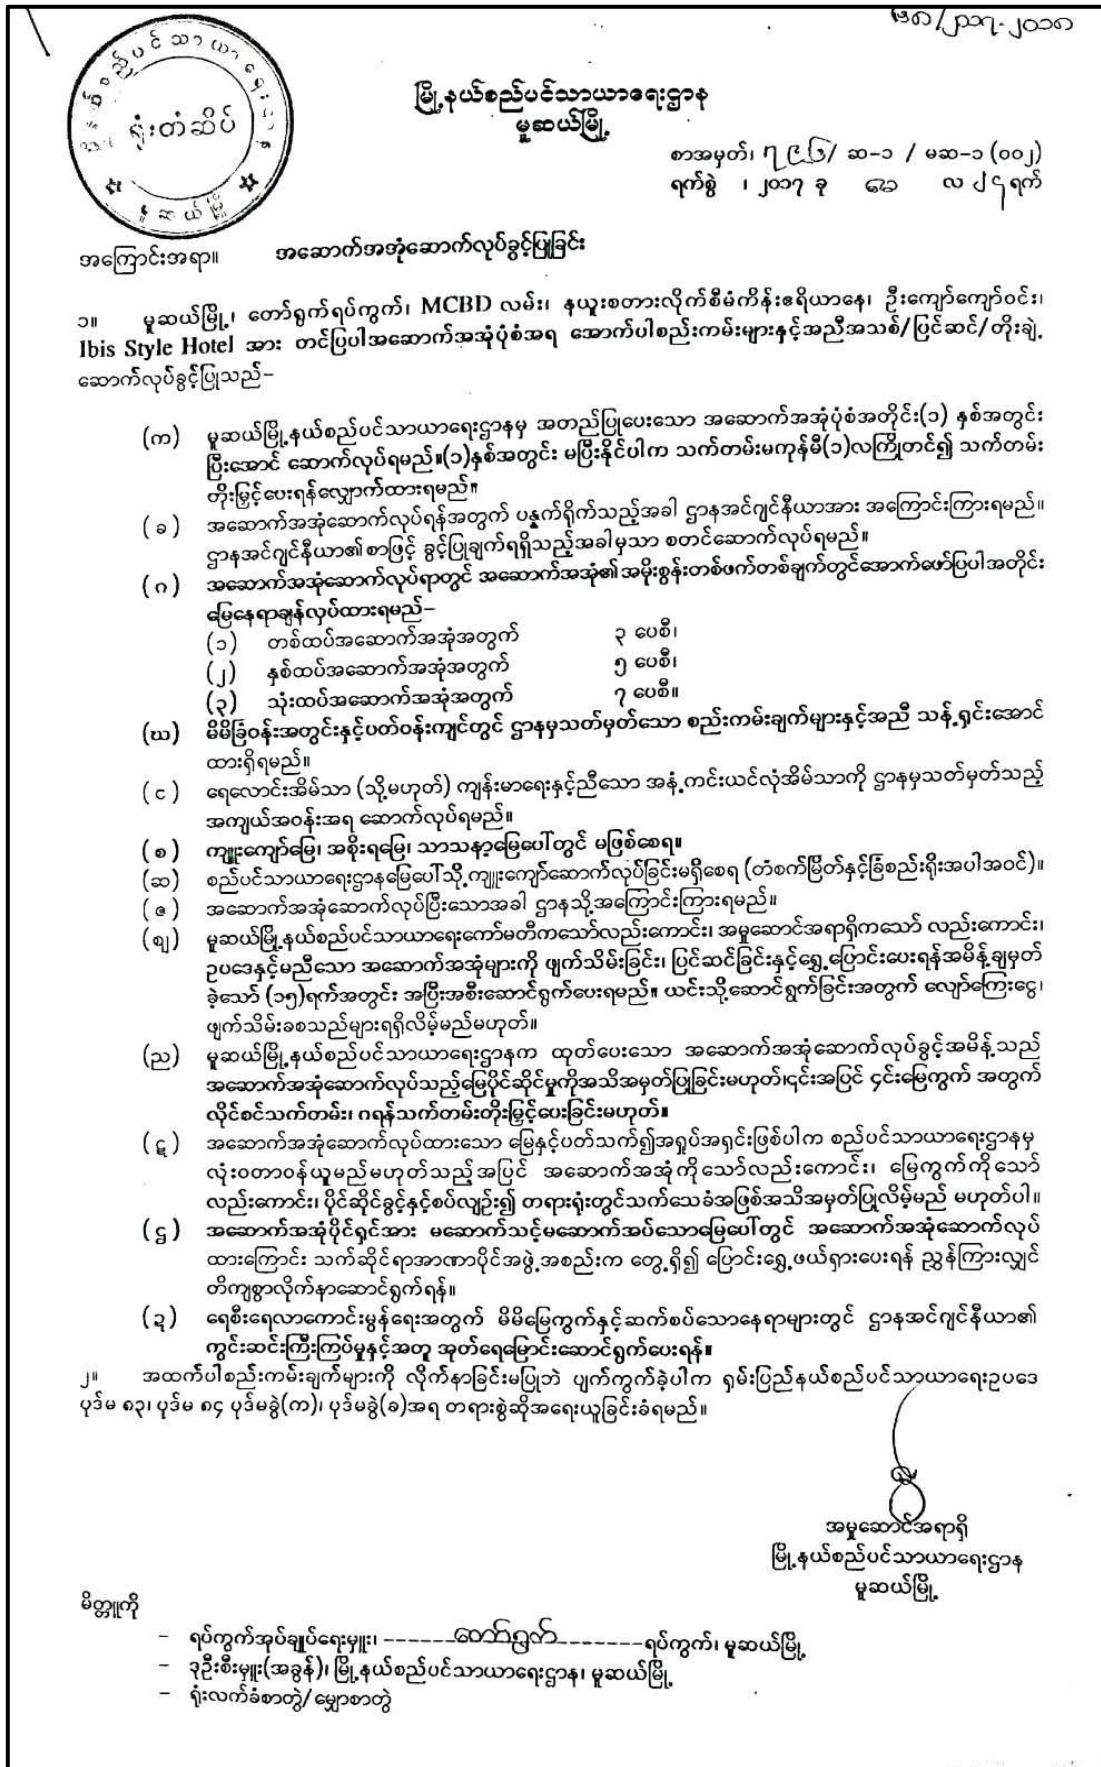 ၁၈/၂၀၁၇-၂၀၁၈
စည်ပင်သာယာရေးဌာန
ရုံးတံဆိပ်
မူဆယ်မြို့
မြို့နယ်စည်ပင်သာယာရေးဌာန
မူဆယ်မြို့
စာအမှတ်၊ ၇၉၆/ ဆ-၁ / မဆ-၁ (၀၀၂)
ရက်စွဲ ၊ ၂၀၁၇ ခု လ ၂၄ ရက်
အကြောင်းအရာ။ အဆောက်အအုံဆောက်လုပ်ခွင့်ပြုခြင်း
၁။ မူဆယ်မြို့၊ တော်ရွက်ရပ်ကွက်၊ MCBD လမ်း၊ နယူးစတားလိုက်စီမံကိန်းဧရိယာနေ၊ ဦးကျော်ကျော်ဝင်း၊
Ibis Style Hotel အား တင်ပြပါအဆောက်အအုံပုံစံအရ အောက်ပါစည်းကမ်းများနှင့်အညီအသစ်/ပြင်ဆင်/တိုးချဲ့
ဆောက်လုပ်ခွင့်ပြုသည်-
(က) မူဆယ်မြို့နယ်စည်ပင်သာယာရေးဌာနမှ အတည်ပြုပေးသော အဆောက်အအုံပုံစံအတိုင်း(၁) နှစ်အတွင်း
ပြီးအောင် ဆောက်လုပ်ရမည်။(၁)နှစ်အတွင်း မပြီးနိုင်ပါက သက်တမ်းမကုန်မီ(၁)လကြိုတင်၍ သက်တမ်း
တိုးမြှင့်ပေးရန်လျှောက်ထားရမည်။
(ခ) အဆောက်အအုံဆောက်လုပ်ရန်အတွက် ပန္နက်ရိုက်သည့်အခါ ဌာနအင်ဂျင်နီယာအား အကြောင်းကြားရမည်။
ဌာနအင်ဂျင်နီယာ၏စာဖြင့် ခွင့်ပြုချက်ရရှိသည့်အခါမှသာ စတင်ဆောက်လုပ်ရမည်။
(ဂ) အဆောက်အအုံဆောက်လုပ်ရာတွင် အဆောက်အအုံ၏အမိုးစွန်းတစ်ဖက်တစ်ချက်တွင်အောက်ဖော်ပြပါအတိုင်း
မြေနေရာချန်လှပ်ထားရမည်-
(၁) တစ်ထပ်အဆောက်အအုံအတွက် ၃ ပေစီ၊
(၂) နှစ်ထပ်အဆောက်အအုံအတွက် ၅ ပေစီ၊
(၃) သုံးထပ်အဆောက်အအုံအတွက် ၇ ပေစီ။
(ဃ) မိမိခြံဝန်းအတွင်းနှင့်ပတ်ဝန်းကျင်တွင် ဌာနမှသတ်မှတ်သော စည်းကမ်းချက်များနှင့်အညီ သန့်ရှင်းအောင်
ထားရှိရမည်။
(င) ရေလောင်းအိမ်သာ (သို့မဟုတ်) ကျန်းမာရေးနှင့်ညီသော အနံ့ကင်းယင်လုံအိမ်သာကို ဌာနမှသတ်မှတ်သည့်
အကျယ်အဝန်းအရ ဆောက်လုပ်ရမည်။
(စ) ကျူးကျော်မြေ၊ အစိုးရမြေ၊ သာသနာ့မြေပေါ်တွင် မဖြစ်စေရ။
(ဆ) စည်ပင်သာယာရေးဌာနမြေပေါ်သို့ကျူးကျော်ဆောက်လုပ်ခြင်းမရှိစေရ (တံစက်မြိတ်နှင့်ခြံစည်းရိုးအပါအဝင်)။
(ဇ) အဆောက်အအုံဆောက်လုပ်ပြီးသောအခါ ဌာနသို့အကြောင်းကြားရမည်။
(ဈ) မူဆယ်မြို့နယ်စည်ပင်သာယာရေးကော်မတီကသော်လည်းကောင်း၊ အမှုဆောင်အရာရှိကသော် လည်းကောင်း၊
ဥပဒေနှင့်မညီသော အဆောက်အအုံများကို ဖျက်သိမ်းခြင်း၊ ပြင်ဆင်ခြင်းနှင့်ရွှေ့ပြောင်းပေးရန်အမိန့်ချမှတ်
ခဲ့သော် (၁၅)ရက်အတွင်း အပြီးအစီးဆောင်ရွက်ပေးရမည်။ ယင်းသို့ဆောင်ရွက်ခြင်းအတွက် လျော်ကြေးငွေ၊
ဖျက်သိမ်းခစသည်များရရှိလိမ့်မည်မဟုတ်။
(ည) မူဆယ်မြို့နယ်စည်ပင်သာယာရေးဌာနက ထုတ်ပေးသော အဆောက်အအုံဆောက်လုပ်ခွင့်အမိန့်သည်
အဆောက်အအုံဆောက်လုပ်သည့်မြေပိုင်ဆိုင်မှုကိုအသိအမှတ်ပြုခြင်းမဟုတ်၊၎င်းအပြင် ၄င်းမြေကွက် အတွက်
လိုင်စင်သက်တမ်း၊ ဂရန်သက်တမ်းတိုးမြှင့်ပေးခြင်းမဟုတ်။
(ဋ) အဆောက်အအုံဆောက်လုပ်ထားသော မြေနှင့်ပတ်သက်၍အရှုပ်အရှင်းဖြစ်ပါက စည်ပင်သာယာရေးဌာနမှ
လုံးဝတာဝန်ယူမည်မဟုတ်သည့်အပြင် အဆောက်အအုံကိုသော်လည်းကောင်း၊ မြေကွက်ကိုသော်
လည်းကောင်း၊ ပိုင်ဆိုင်ခွင့်နှင့်စပ်လျဉ်း၍ တရားရုံးတွင်သက်သေခံအဖြစ်အသိအမှတ်ပြုလိမ့်မည် မဟုတ်ပါ။
(ဌ) အဆောက်အအုံပိုင်ရှင်အား မဆောက်သင့်မဆောက်အပ်သောမြေပေါ်တွင် အဆောက်အအုံဆောက်လုပ်
ထားကြောင်း သက်ဆိုင်ရာအာဏာပိုင်အဖွဲ့အစည်းက တွေ့ရှိ၍ ပြောင်းရွှေ့ဖယ်ရှားပေးရန် ညွှန်ကြားလျှင်
တိကျစွာလိုက်နာဆောင်ရွက်ရန်။
(ဍ) ရေစီးရေလာကောင်းမွန်ရေးအတွက် မိမိမြေကွက်နှင့်ဆက်စပ်သောနေရာများတွင် ဌာနအင်ဂျင်နီယာ၏
ကွင်းဆင်းကြီးကြပ်မှုနှင့်အတူ အုတ်ရေမြောင်းဆောင်ရွက်ပေးရန်။
၂။ အထက်ပါစည်းကမ်းချက်များကို လိုက်နာခြင်းမပြုဘဲ ပျက်ကွက်ခဲ့ပါက ရှမ်းပြည်နယ်စည်ပင်သာယာရေးဥပဒေ
ပုဒ်မ ၈၃၊ ပုဒ်မ ၈၄ ပုဒ်မခွဲ(က)၊ ပုဒ်မခွဲ(ခ)အရ တရားစွဲဆိုအရေးယူခြင်းခံရမည်။
အမှုဆောင်အရာရှိ
မြို့နယ်စည်ပင်သာယာရေးဌာန
မူဆယ်မြို့
မိတ္တူကို
- ရပ်ကွက်အုပ်ချုပ်ရေးမှူး၊ ------တော်ရွက်-------ရပ်ကွက်၊ မူဆယ်မြို့
- ဒုဦးစီးမှူး(အခွန်)၊ မြို့နယ်စည်ပင်သာယာရေးဌာန၊ မူဆယ်မြို့
- ရုံးလက်ခံစာတွဲ/မျှောစာတွဲ